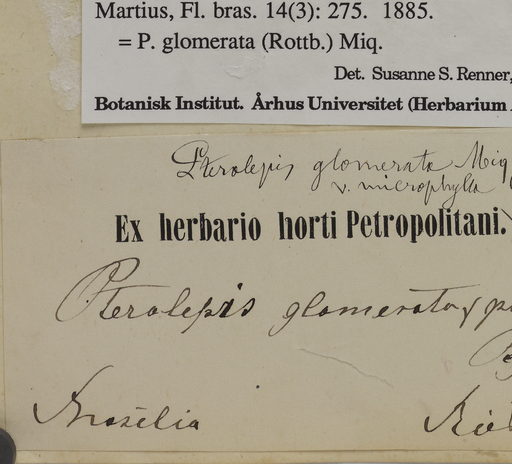 Martius, Fl. bras. 14(3): 275. 1885.
= P. glomerata (Rottb.) Miq.
Det. Susanne S. Renner,
Botanisk Institut. Århus Universitet (Herbarium
Pterolepis glomerata Miq
v. microphylla
Ex herbario horti Petropolitani.
Pterolepis glomerata
Brasilia